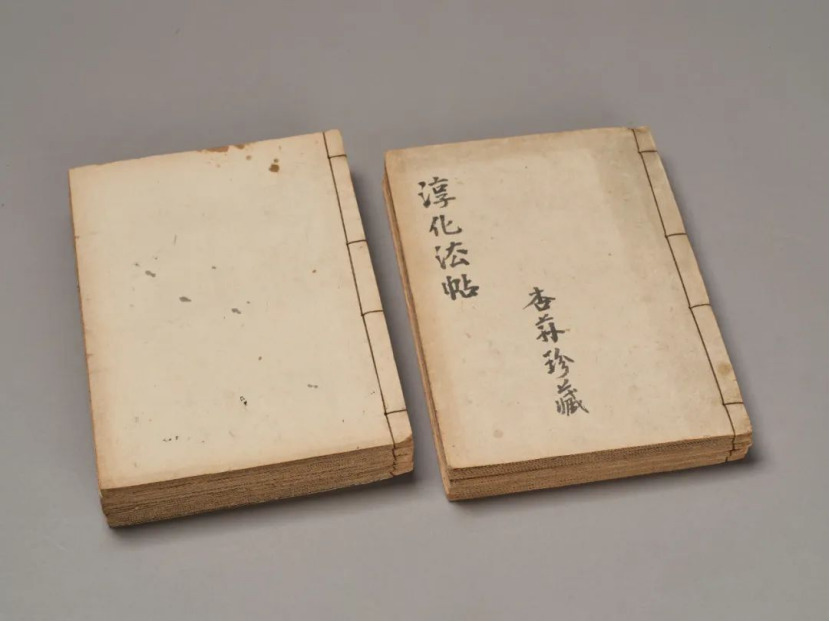 淳化法帖
杏蓀珍藏